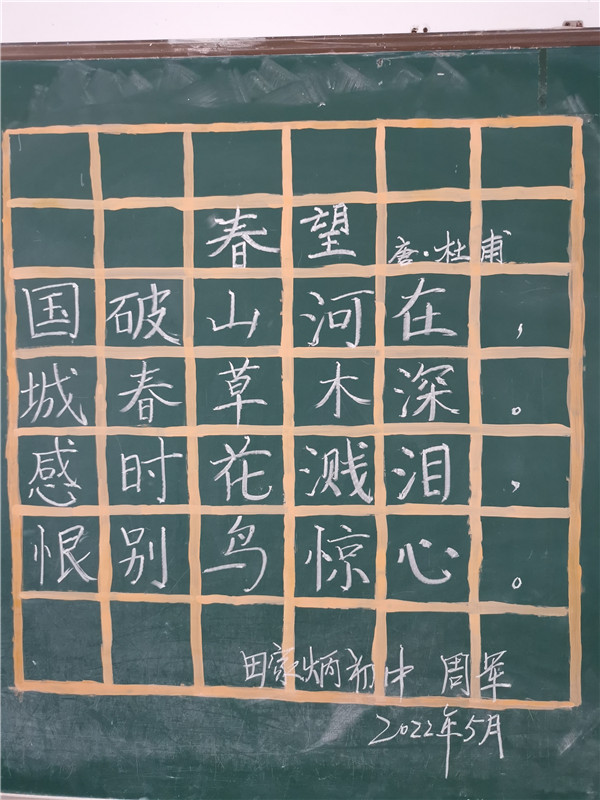 春望 唐·杜甫
国破山河在，
城春草木深。
感时花溅泪，
恨别鸟惊心。
田家炳初中 周军
2022年5月